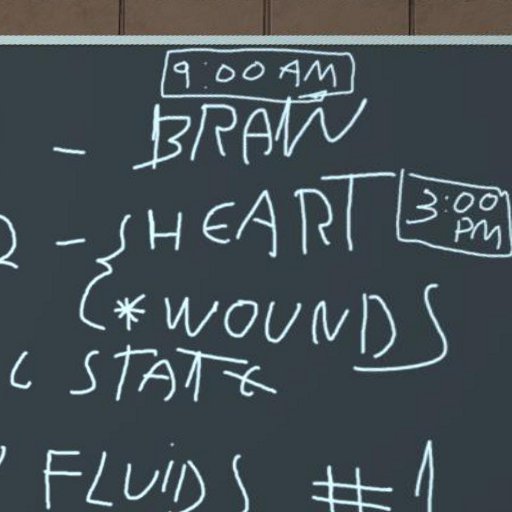 9:00 AM
- BRAIN
2 - { HEART 3:00 PM
* WOUNDS
C STATE
FLUIDS #1